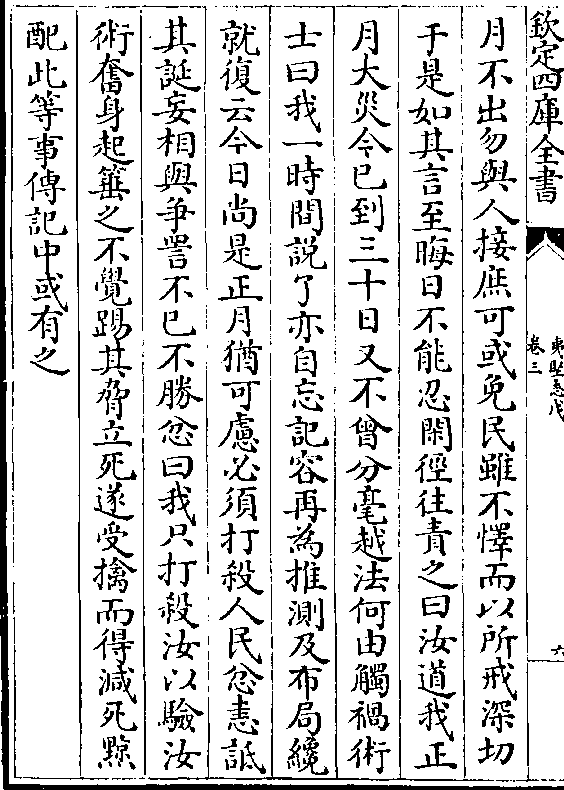 欽定四庫全書
夷堅志戊
卷三
六
月不出勿與人接庶可或免民雖不懌而以所戒深切
于是如其言至晦日不能忍閑徑往責之曰汝道我正
月大災今已到三十日又不曾分毫越法何由觸禍術
士曰我一時間說了亦自忘記容再為推測及布局纔
就復云今日尚是正月猶可慮必須打殺人民忿恚詆
其誕妄相與爭詈不已不勝忿曰我只打殺汝以驗汝
術奮身起箠之不覺踢其脅立死遂受擒而得減死黥
配此等事傳記中或有之